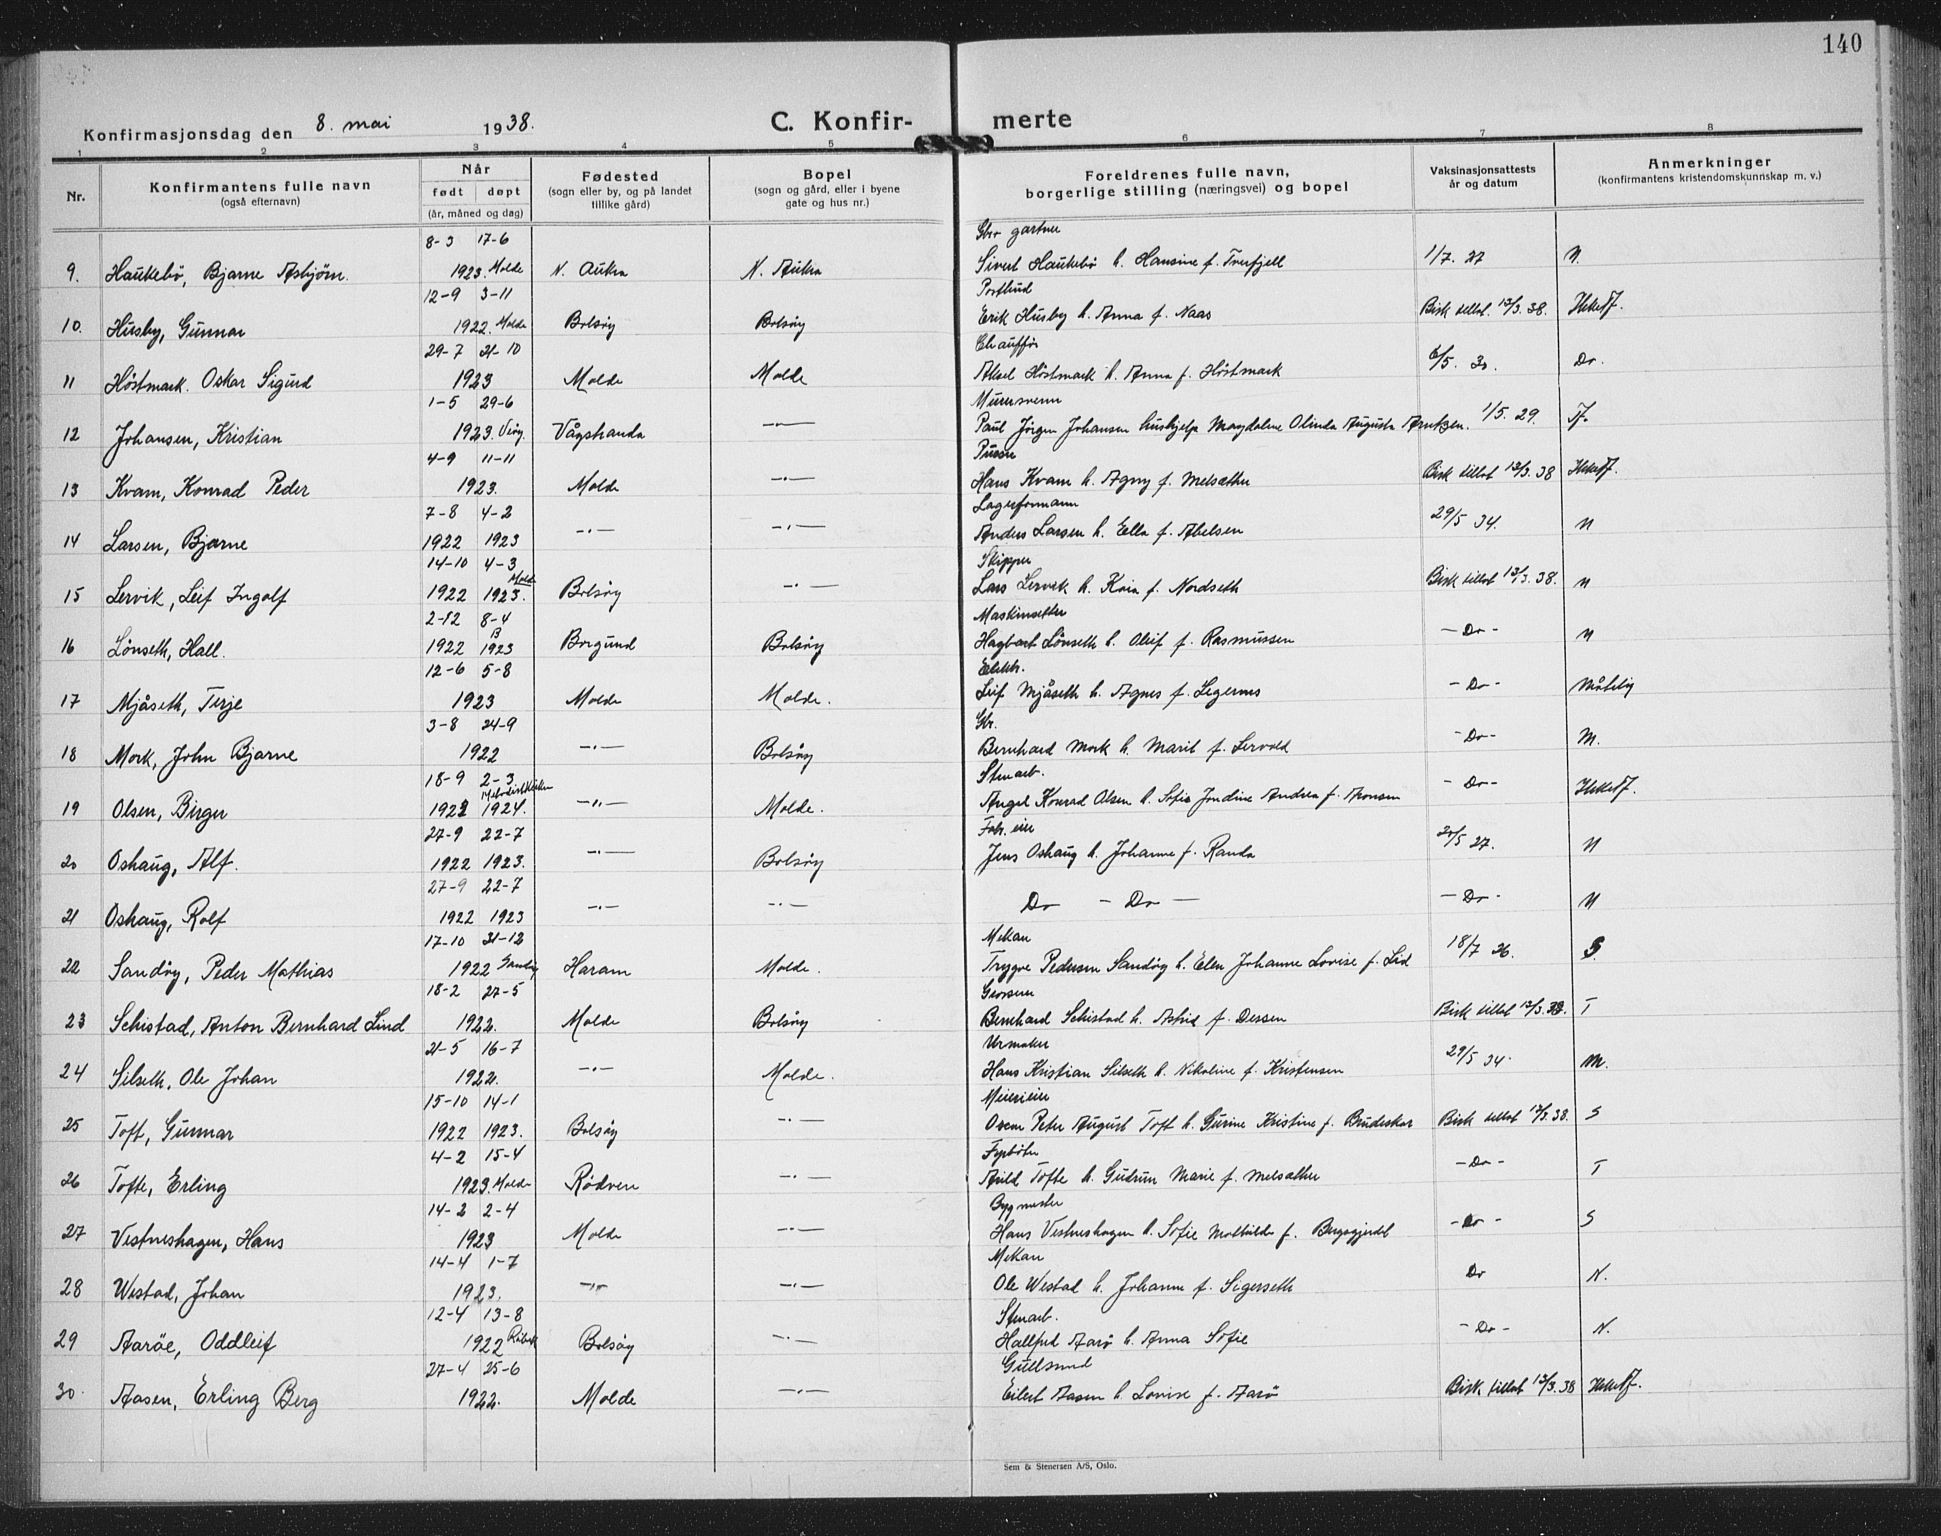 140
Konfirmasjonsdag den 8. mai 1938.
C. Konfirmerte
1 2 3 4 5 6 7 8
Nr. Konfirmantens fulle navn (også efternavn) Når født døpt (år, måned og dag) Fødested (sogn eller by, og på landet tillike gård) Bopel (sogn og gård, eller i byene gate og hus nr.) Foreldrenes fulle navn, borgerlige stilling (næringsvei) og bopel Vaksinasjonsattests år og datum Anmerkninger (konfirmantens kristendomskunnskap m. v.)
8-3 17-6 Gbr gartner
9. Haukebø, Bjarne Asbjørn. 1923. Molde N. Aukra N. Aukra Sivert Haukebø h. Hansine f. Trerfjell 1/7. 27 N.
12-9 3-11 Postbud
10. Husby, Gunnar 1922. Molde Bolsøy Bolsøy Erik Husby h. Anna f. Naas Bisk tillat 12/3. 38. Ikke T.
29-7 21-10 Chauffør
11 Høstmark. Oskar Sigurd 1923 Molde Molde Aksel Høstmark h. Anna f. Høstmark 6/5. 30. Do.
1-5 29-6 Murersvenn
12 Johansen, Kristian 1923. Veøy. Vågstranda -"- Paul Jørgen Johansen hushjelp Magdalene Olinda Augusta Arntzen. 1/5. 29. T.
4-9 11-11
13 Kvam, Konrad Peder 1923. Molde -"- Hans Kvam h. Agny f. Melsæther Bisk tillat 12/3. 38 Ikke T.
7-8 4-2 Lagerformann
14 Larsen, Bjarne 1922 1923 -"- -"- Anders Larsen h. Ella f. Abelsen 29/5 34. N
14-10 4-3 Skipper
15 Lervik, Leif Ingolf 1922 1923. Molde Bolsøy -"- Lars Lervik h. Kaia f. Nordseth Bisk tillat 12/3. 38. N
2-12 8-4 Maskinsetter
16 Lønseth, Hall. 1922 B 1923 Borgund Bolsøy Hagbart Lønseth h. Oluf f. Rasmussen - Do - N
12-6 5-8 Elektr.
17 Mjåseth, Terje 1923 Molde Molde. Leif Mjåseth h. Agnes f. Legernes - Do - Måtelig
3-8 24-9 Gbr.
18 Mork, John Bjarne 1922 -"- Bolsøy Bernhard Mork h. Marit f. Lervold - Do - M.
18-9 2-3 Metodistkirken Stuearb.
19 Olsen, Birger 1923 1924. -"- Molde. Angel Konrad Olsen h. Sofie Jondine Andrea f. Aronsen - Do - Ikke T.
27-9 22-7 Fabr. eier
20 Oshaug, Alf. 1922 1923. -"- Bolsøy Jens Oshaug h. Johanne f. Randa 20/5 27. N
27-9 22-7
21 Oshaug, Rolf 1922 1923 -"- -"- Do - Do - - Do - N
17-10 31-12 Mekan
22 Sandøy, Peder Mathias 1922 Sandøy Haram Molde. Trygve Pedersen Sandøy h. Elen Johanne Lovise f. Lid 18/7 36. S.
18-2 27-5 Grosserer
23 Schistad, Anton Bernhard Lind 1922. Molde Bolsøy Bernhard Schistad h. Astrid f. Dessen Bisk tillat 12/3. 38. T
21-5 16-7 Urmaker
24 Silseth, Ole Johan 1922. -"- Molde. Hans Kristian Silseth h. Nikoline f. Kristensen 29/5 34. M.
15-10 14-1 Meierieier
25 Toft, Gunnar 1922 1923. Bolsøy -"- Oven Peter August Toft h. Gurine Kristine f. Brudeskar Bisk tillat 12/3. 38. S
4-2 15-4 Fyrbøter
26 Tofte, Erling 1923. Molde Rødven -"- Arild Tofte h. Gudrun Marie f. Melsæther - Do - T
14-2 2-4 Bygmester
27 Vestneshagen, Hans 1923 Molde -"- Hans Vestneshagen h. Sofie Mathilde f. Bergsgjerdet - Do - S
14-4 1-7 Mekan
28 Westad, Johan 1923. -"- -"- Ole Westad h. Johanne f. Sigerseth Do N.
12-4 13-8 Stuearb.
29 Aarøe, Oddleif 1922 Røbek Bolsøy -"- Hallfred Aarø h. Anna Sofie - Do - N.
27-4 25-6 Gullsmed
30. Aasen, Erling Berg 1922. Molde -"- Eilert Aasen h. Lovise f. Aarø Bisk tillat 12/3. 38 Ikke T.
Sem & Stenersen A/S, Oslo.